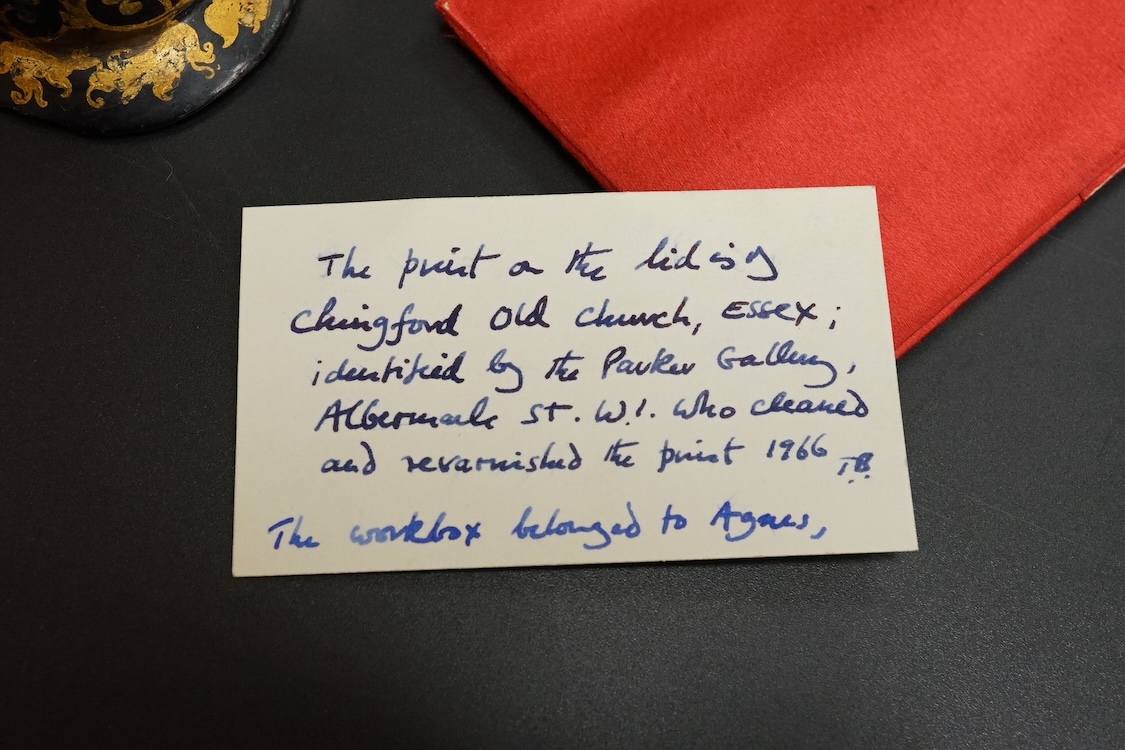 The print on the lid is of
Chingford Old Church, Essex;
identified by the Parker Gallery,
Albermarle St. W.1. who cleaned
and revarnished the print 1966
The workbox belonged to Agnes,